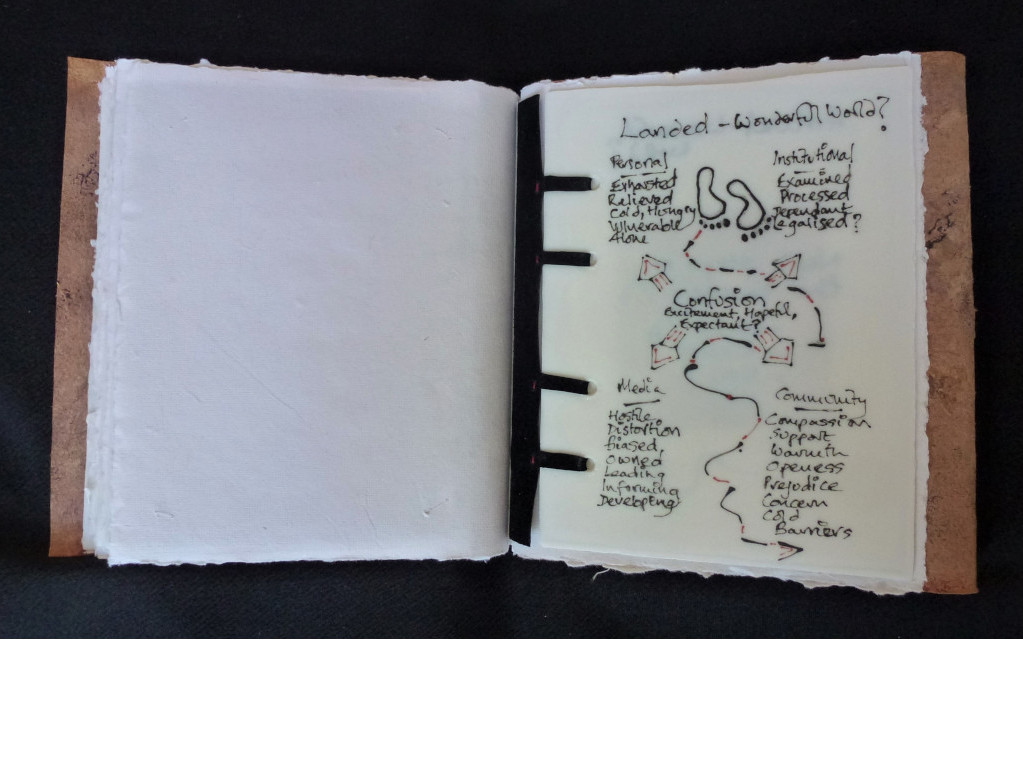 Landed - Wonderful World?
Personal
Exhausted
Relieved
Cold, Hungry
Vulnerable
Alone
Institutional
Examined
Processed
Dependant
Legalised?
Confusion
Excitement, Hopeful,
Expectant?
Media
Hostile
Distortion
Biased,
Owned
Leading
Informing
Developing
Community
Compassion
Support
Warmth
Openess
Prejodice
Concern
Cold
Barriers